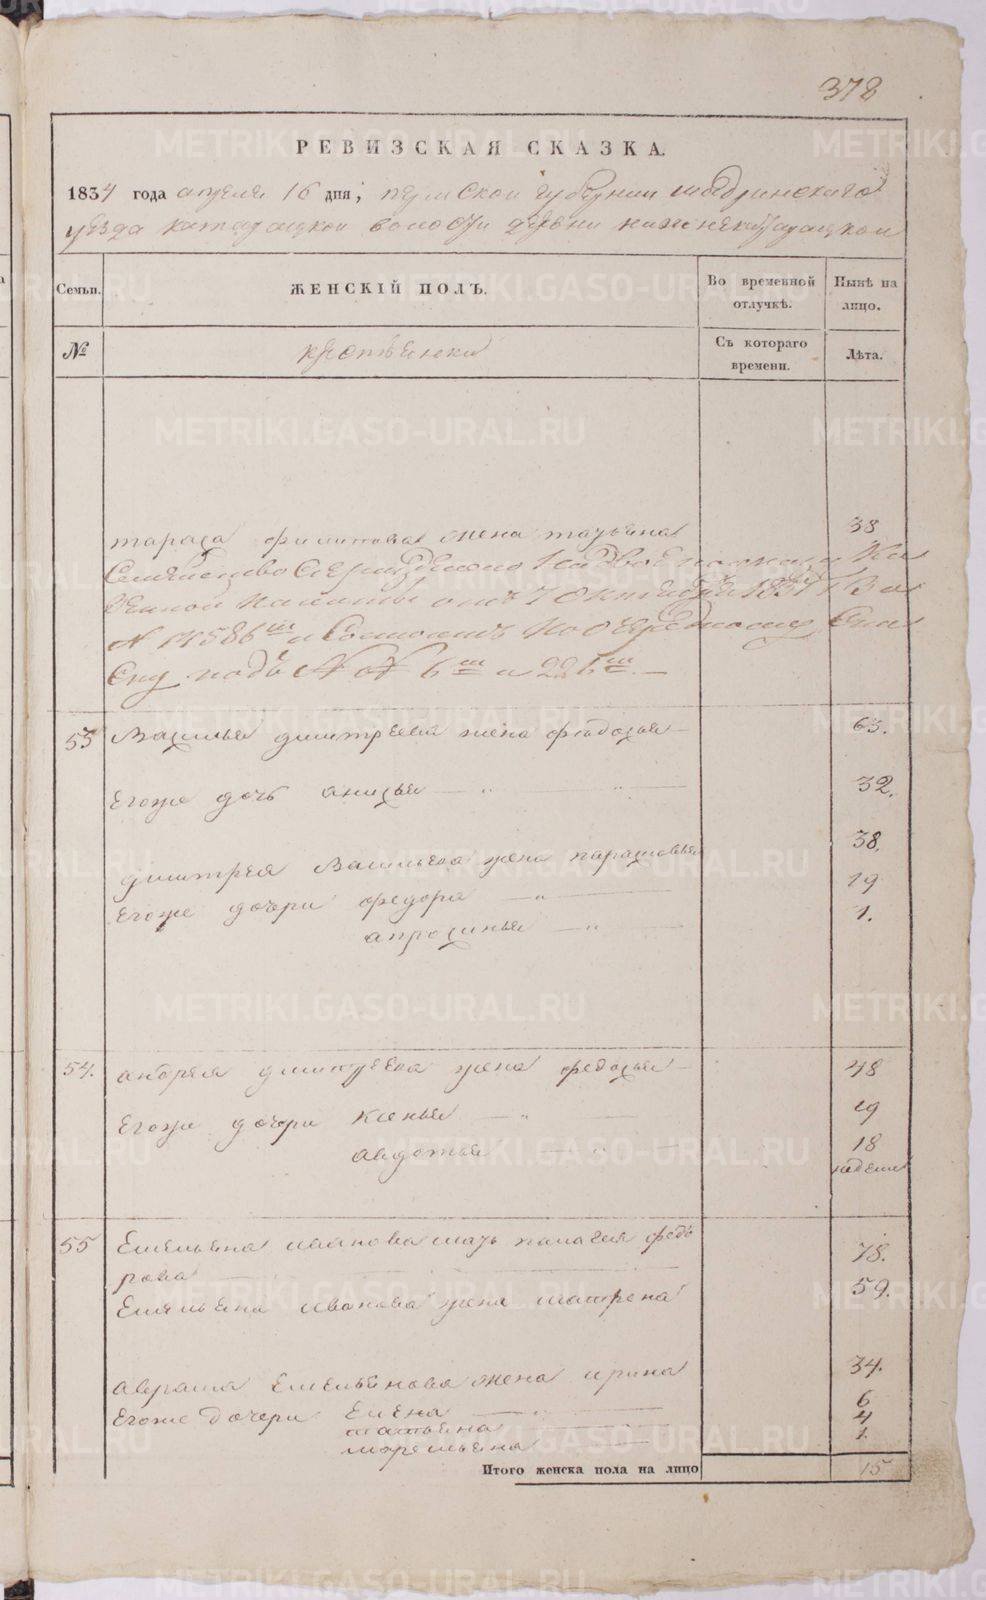 378
РЕВИЗСКАЯ СКАЗКА.
1834 года апреля 16 дня, пермской губернии шадринскаго
уезда катадацкой волости деревни нижне
Семьи.
ЖЕНСКІЙ ПОЛЪ.
Во временной отлучкѣ.
Нынѣ на лицо.
№
крестьянки
Съ котораго времени.
Лѣта.
тараса филипова жена татьяна 38
Семейство Сие разделено надвое поуказу Ка
зенной палаты отъ 7 октября 1831 г За
N 14586 и Состоитъ по очередному Спи
Ску подъ N N 6 и 226
53 Василья дмитреева жена федосья 63.
Егоже дочь анисья 32.
дмитрея Васильева жена парасковья 38.
Егоже дочери федора 19
апросинья 1.
54. андрея дмитреева жена федосья 48
Егоже дочери ксенья 19
авдотья 18
недели
55 Емельяна иванова мать палагея федо 78.
рова
Емельяна иванова жена матрена 59.
аврама Емельянова жена ирина 34.
Егоже дочери Елена 6
татьяна 4
маремьяна 1.
Итого женска пола на лицо 15
METRIKI.GASO-URAL.RU